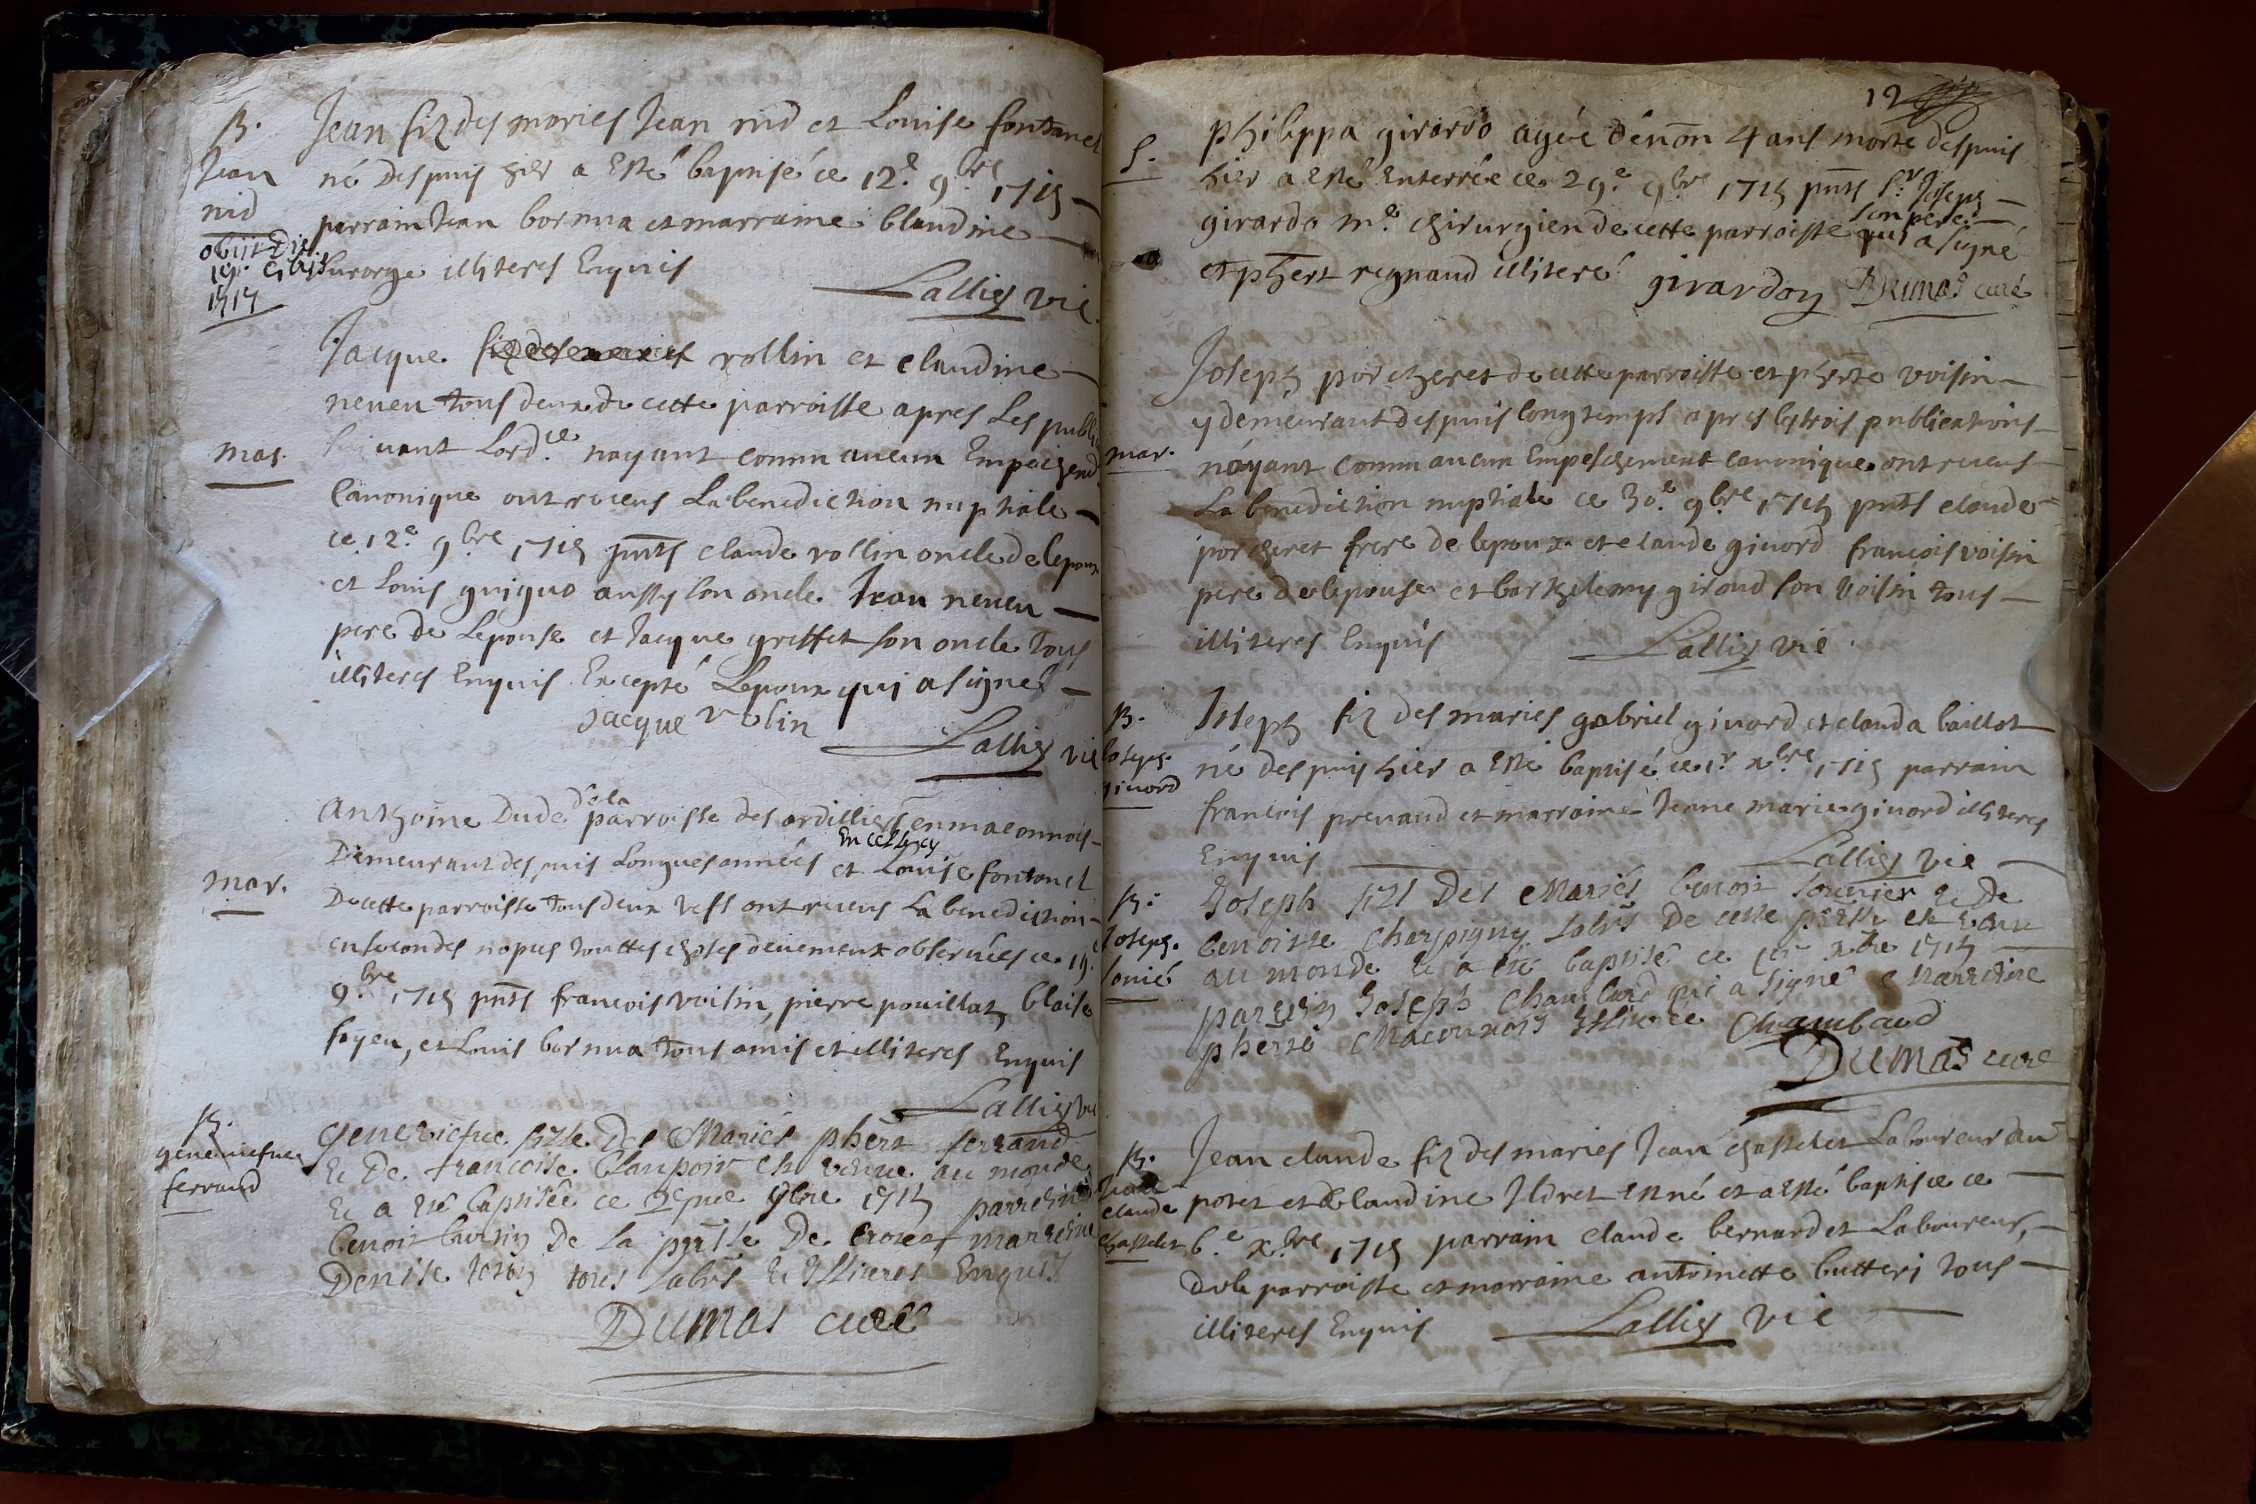 B.
Jean
nid
obijt die
19a eibis
1717
Jean filz des maries Jean nid et Louise fontanel
né despuis hier a esté baptisé ce 12.e 9.bre 1715
parrain Jean bornua et marraine blandine
illiteres Enquis
Lallies vic.
mar.
Jacque rollin et claudine
neueu tous deux de cette parroisse apres Les publi
suiuant Lord.ce nayant connu aucun Empechemt
Canonique ont receus La benediction nuptiale
ce 12.e 9.bre 1715 pnts claude rollin oncle de lepoux
et Louis guiguo aussy son oncle Jean neueu
pere de Lepouse et Jacque greffet son oncle tous
illiteres Enquis Excepté Lepoux qui a signé
Jacque rolin
Lallies vic
mar.
Anthoine Dude de la parroisse des ardilliers en maconnois
Demeurant despuis Longues années en celle cy et Louise fontanel
De cette parroisse tous deux vefs ont receus La benediction
en secondes nopces touttes choses deuement obseruées ce 19.e
9.bre 1715 pnts francois voisin, pierre pouillat, blaise
foyeu, et Louis bornua tous amis et illiteres Enquis
Lallies vic
B.
geneuiefue
ferraud
Geneviefve fille Des Mariés phert ferraud
Et De francoise Claupoir Est venue au monde
Et a Eté baptisée ce 9bre 1715 parrein
benoit De la prsse De marreine
Denise tous Labrs Et Illiteres Enquis
Dumas curé
12
S.
philippa girardo agée denuon 4 ans morte despuis
hier a esté Enterrée ce 29.e 9.bre 1715 pnts S.r Joseph
girardo m.e chirurgien de cette parroisse son pere qui a signé
et phert regnaud illiteré girardon Dumas curé
mar.
Joseph porcheret de cette parroisse et pherte voisin
y demeurant despuis longtemps apres les trois publications
nayant connu aucun Empeschement canonique ont receus
La benediction nuptiale ce 30.e 9.bre 1715 pnts claude
porcheret frere de lepoux et claude giuord francois voisin
pere de lepouse et barthelemy giroud son voisin tous
illiteres Enquis Lallies vic
B.
Joseph
giuord
Joseph filz des maries gabriel giuord et clauda baillot
né despuis hier a esté baptisé ce 1.r x.bre 1715 parrain
francois preuaud et marraine Jenne marie giuord illiteres
Enquis Lallies vic
B.
Joseph
Joseph fils Des Mariés benoit Et De
benoitte Charpigny Labrs De cette prsse est venu
au monde Et a été baptisé ce 1er xbre 1715
parrein Joseph Chambard qui a signé Marreine
pherte Maconnois Illiteree Chambard
Dumas curé
B.
Jean
claude
chastelet
Jean claude filz des maries Jean chastelet Laboureur au
poret et de Claudine est né et a esté baptisé ce
6.e x.bre 1715 parrain claude bernardet Laboureur,
de la parroisse et marraine antoinette butteri tous
illiteres Enquis Lallies vic